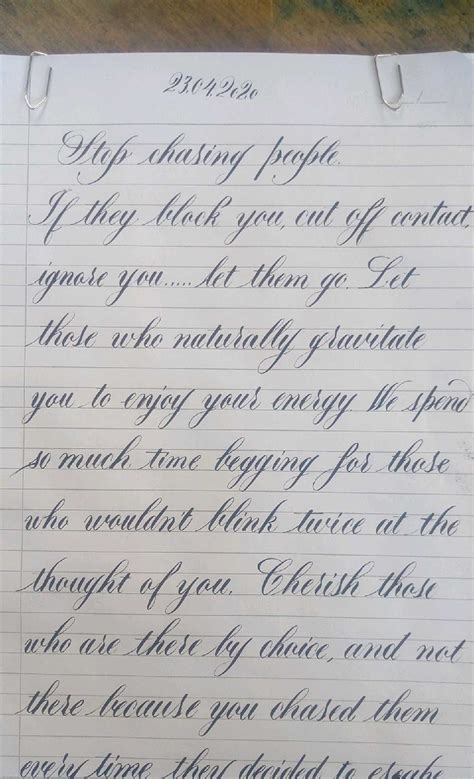 23.04.2020
Stop chasing people.
If they block you, cut off contact,
ignore you..... let them go. Let
those who naturally gravitate
you to enjoy your energy. We spend
so much time begging for those
who wouldn't blink twice at the
thought of you. Cherish those
who are there by choice, and not
there because you chased them
every time they decided to escape